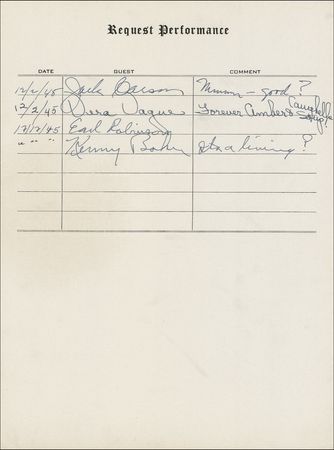 Request Performance
DATE GUEST COMMENT
12/2/45 Jack Carson Mmmm - good?
12/2/45 Vera Vague Forever Ambers Campbell's Soup
12/12/45 Earl Robinson
" " " Kenny Baker It's a living?